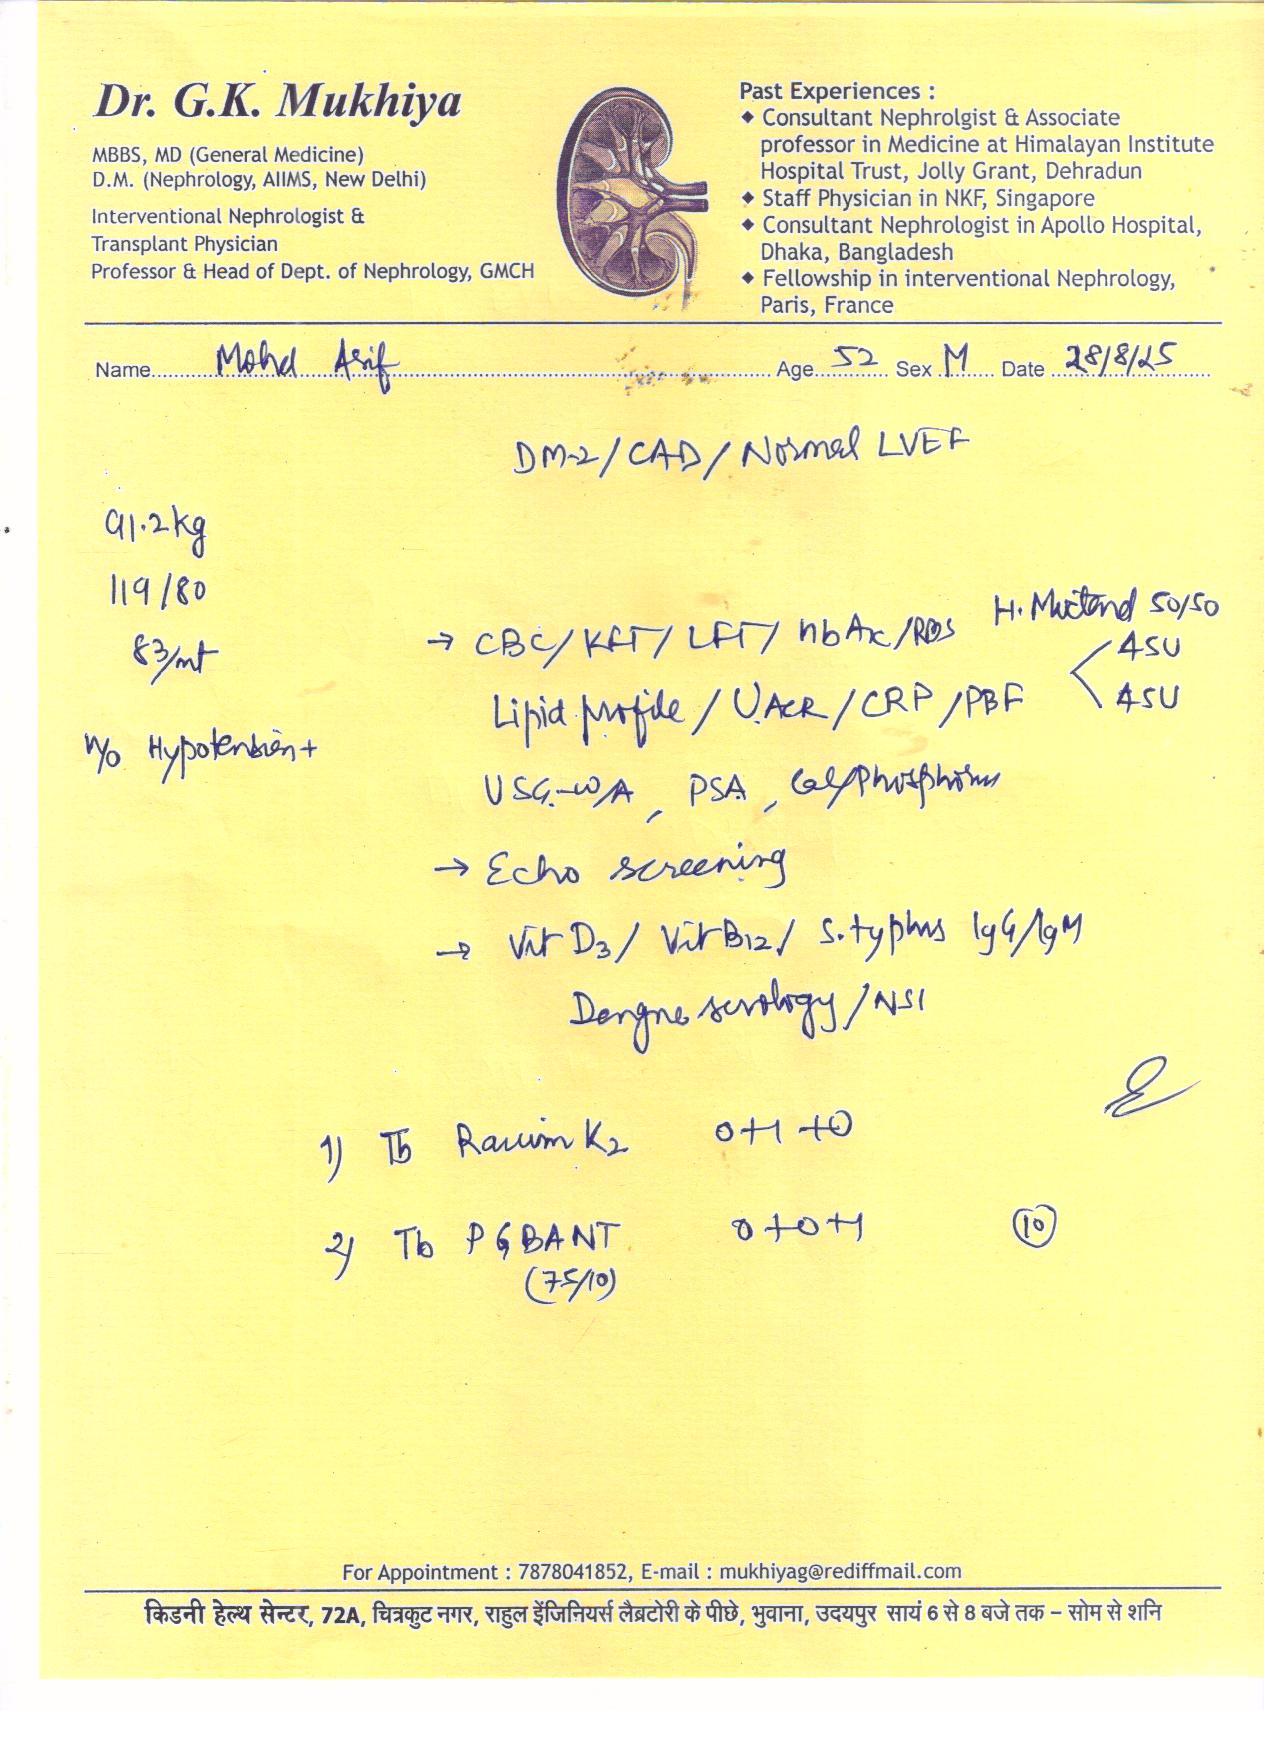 Dr. G.K. Mukhiya
MBBS, MD (General Medicine)
D.M. (Nephrology, AIIMS, New Delhi)
Interventional Nephrologist &
Transplant Physician
Professor & Head of Dept. of Nephrology, GMCH
Past Experiences :
◆ Consultant Nephrolgist & Associate
professor in Medicine at Himalayan Institute
Hospital Trust, Jolly Grant, Dehradun
◆ Staff Physician in NKF, Singapore
◆ Consultant Nephrologist in Apollo Hospital,
Dhaka, Bangladesh
◆ Fellowship in interventional Nephrology,
Paris, France
Name Mohd Asif Age 52 Sex M Date 28/8/25
DM-2/CAD/Normal LVEF
91.2kg
119/80
83/mt
Hypotension+
→ CBC/KFT/LFT/HbA1c/RBS
H. Mixtard 50/50
45U
45U
Lipid profile/UACR/CRP/PBF
USG-W/A, PSA, Cal/Phosphorus
→ Echo screening
→ Vit D3/Vit B12/S.typhus IgG/IgM
Dengue serology/NS1
1) Tb K2 0+1+0
2) Tb PGBANT 0+0+1 10
(75/10)
For Appointment : 7878041852, E-mail : mukhiyag@rediffmail.com
किडनी हेल्थ सेन्टर, 72A, चित्रकुट नगर, राहुल इंजिनियर्स लैबटोरी के पीछे, भुवाना, उदयपुर सायं 6 से 8 बजे तक – सोम से शनि